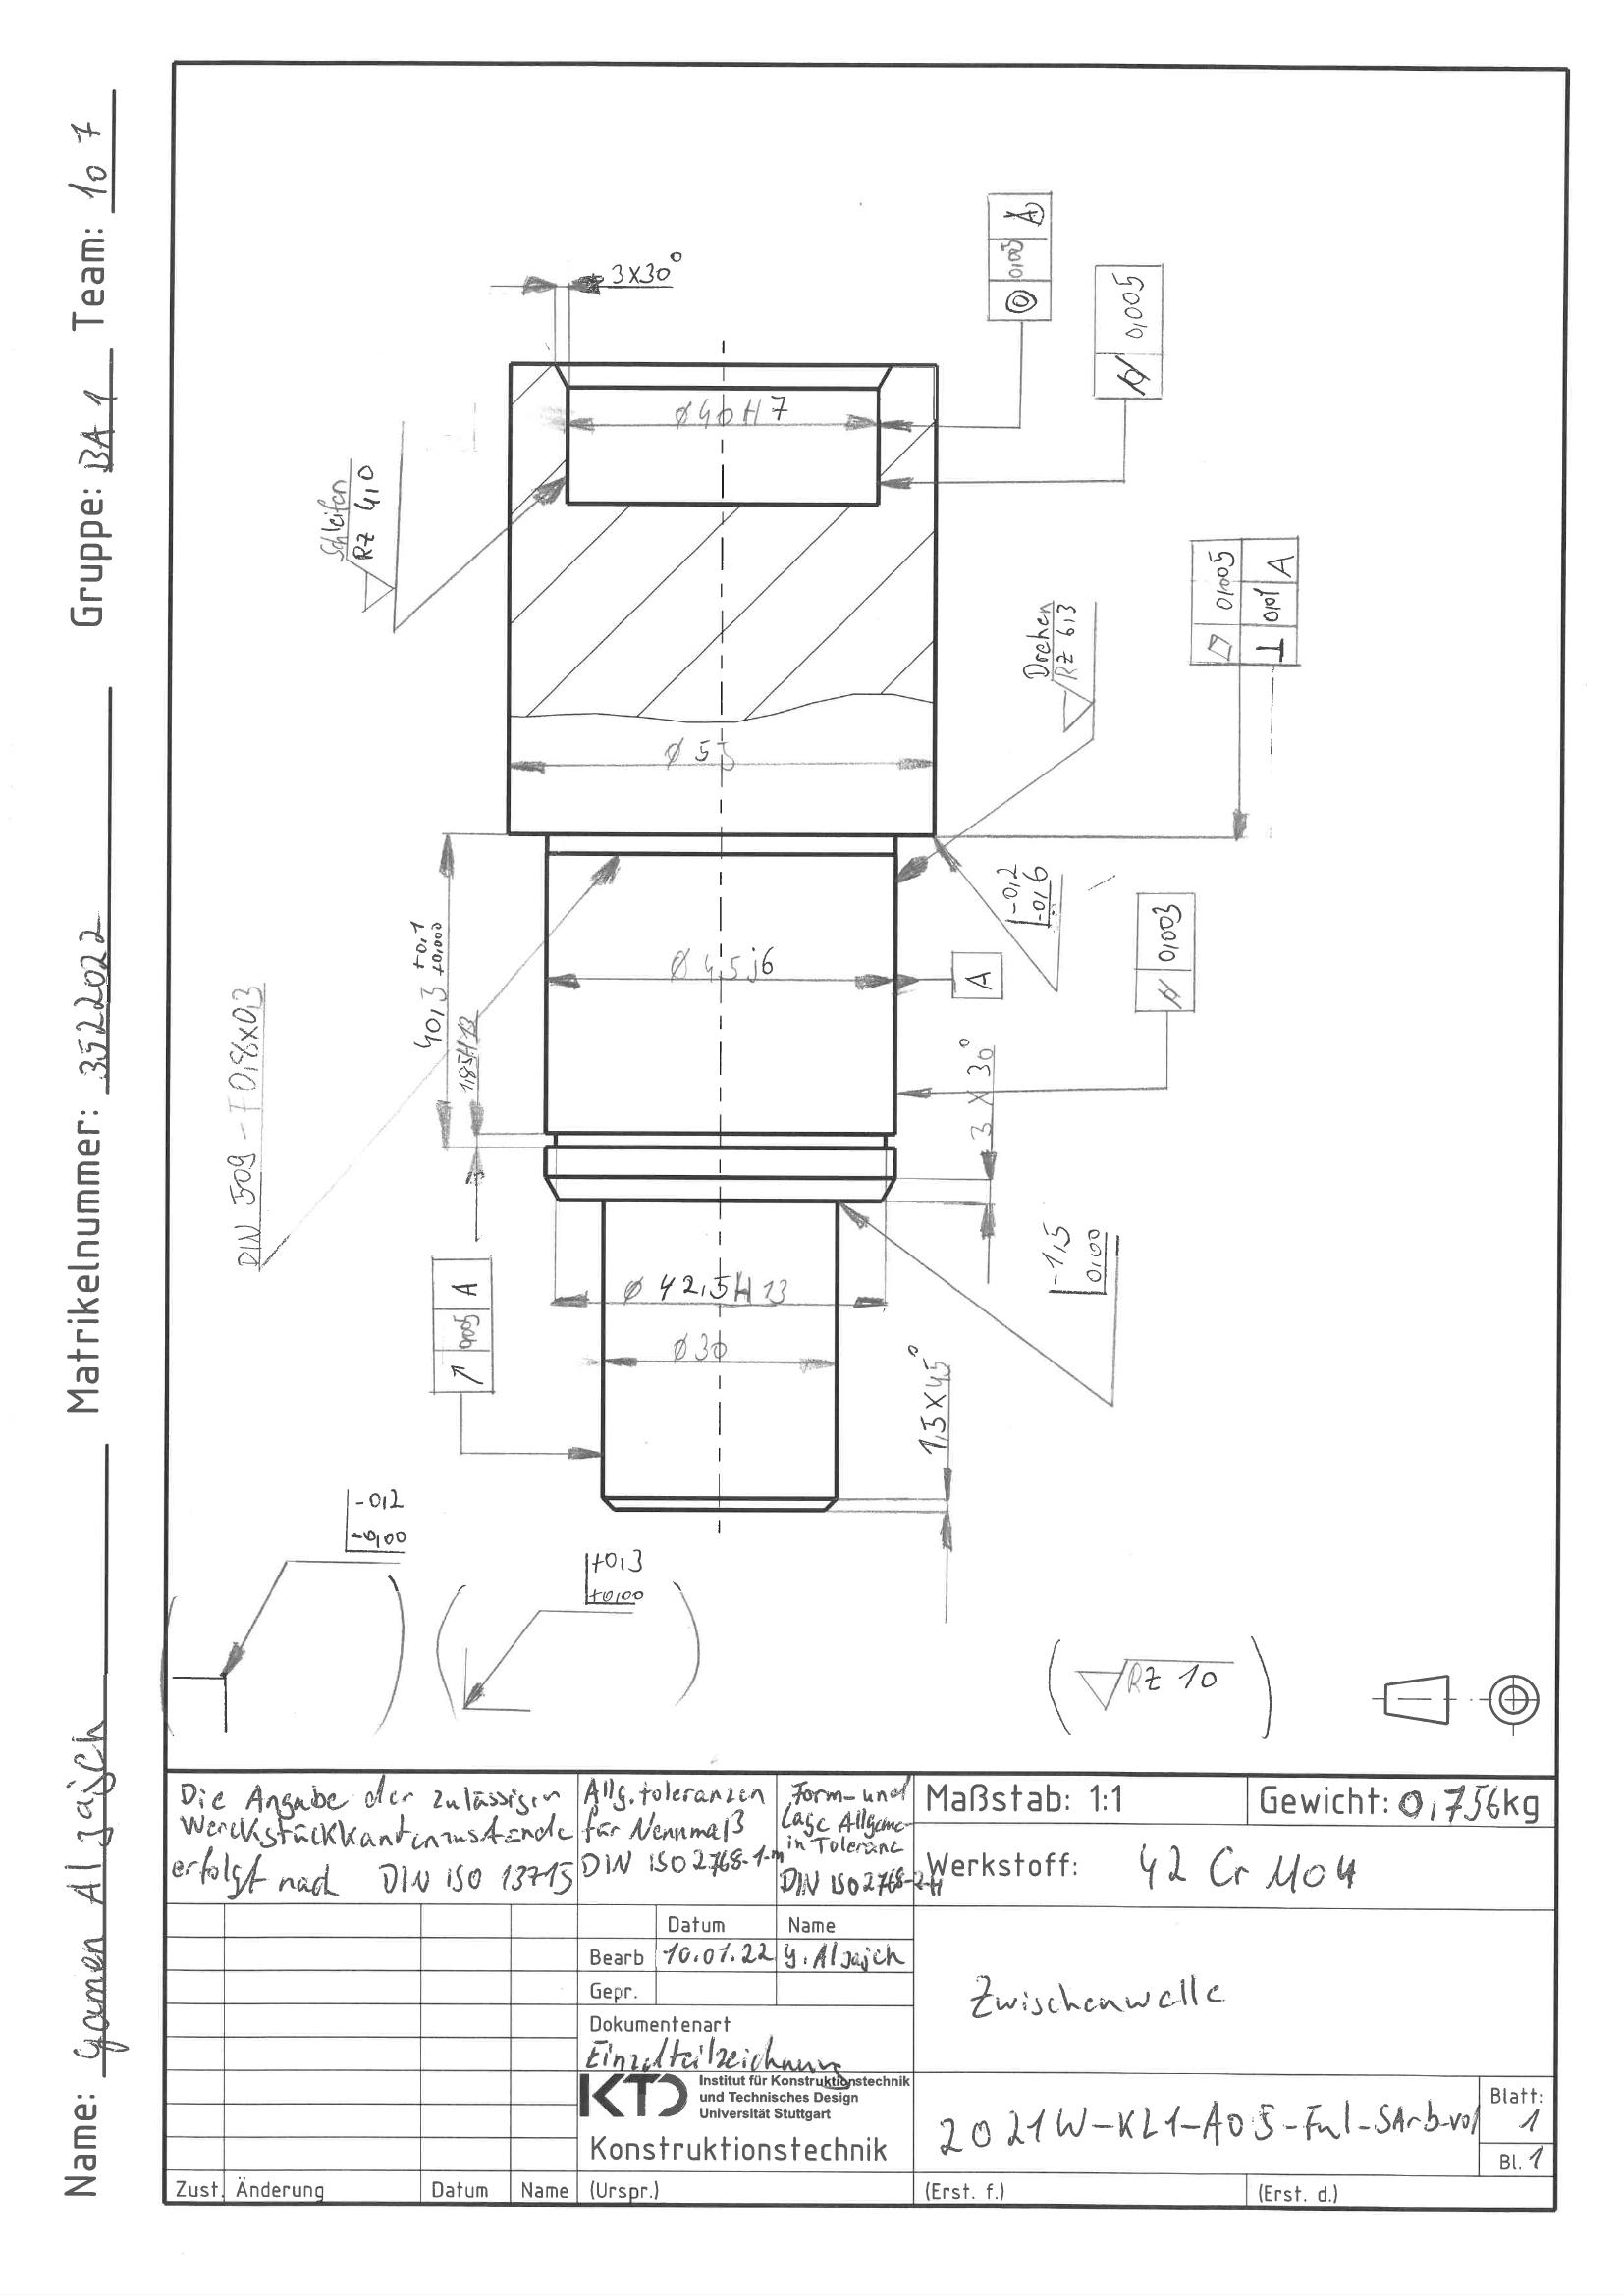 Name: Yamen Alzajch Matrikelnummer: 3522022 Gruppe: BA 1 Team: 107
3X30°
◎ 0,005 A
⌭ 0,005
Ø40H7
Schleifen
Rz 4,0
⏥ 0,005
⊥ 0,01 A
Drehen
Rz 6,3
Ø 55
-0,2
-0,6
40,3 +0,1 +0,000
Ø 45j6
A
⌭ 0,003
DIN 509 - F0,8x0,3
1,85H13
3 X 30°
-1,5
0,00
↗ 0,005 A
Ø 42,5H13
Ø30
1,5X45°
-0,2
-0,00
+0,3
+0,00
Rz 10
Die Angabe der zulässigen
Werckstückkantenzustände
erfolgt nach DIN ISO 13715
Allg.toleranzen
für Nennmaß
DIN ISO2768-1-m
Form- und
Lage Allgeme-
in Toleranc
DIN ISO2768-2-H
Maßstab: 1:1
Gewicht: 0,756kg
Werkstoff: 42 Cr Mo4
Datum Name
Bearb 10.01.22 Y. Alzajch
Gepr.
Zwischenwelle
Dokumentenart
Einzelteilzeichnung
KTD Institut für Konstruktionstechnik
und Technisches Design
Universität Stuttgart
Konstruktionstechnik
2021W-KL1-A05-Fnl-SArb-v01
Blatt:
1
Bl. 1
Zust. Änderung Datum Name (Urspr.) (Erst. f.) (Erst. d.)